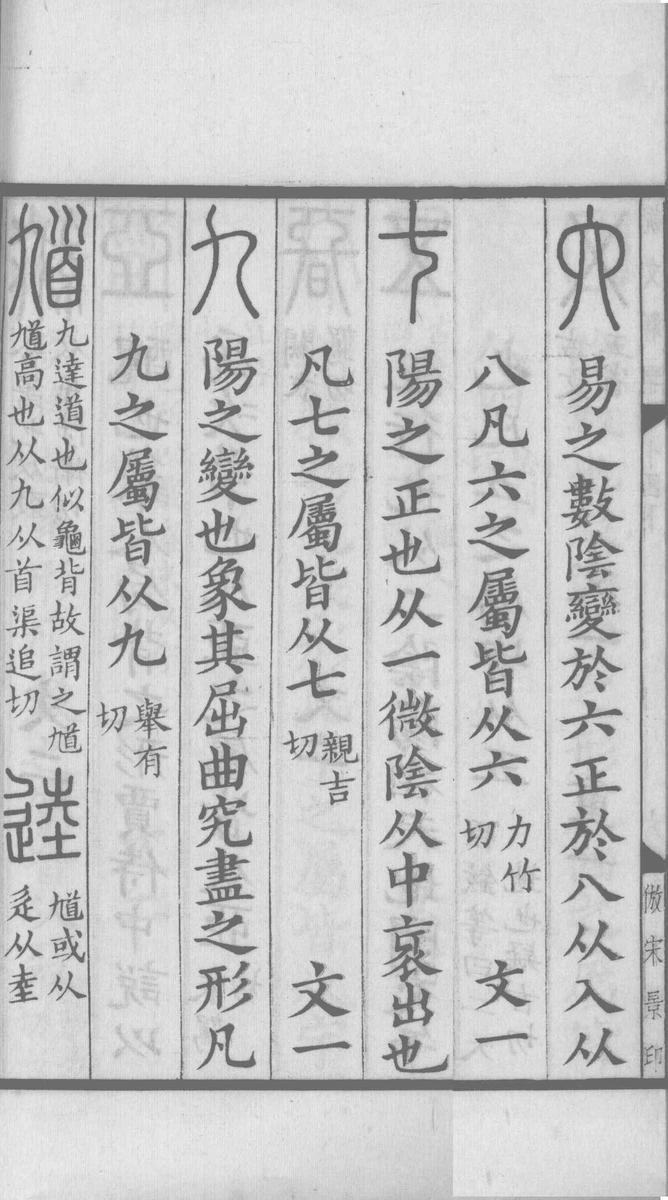 六 易之數陰變於六正於八从入从
八凡六之屬皆从六 力竹切 文一
七 陽之正也从一微陰从中衺出也
凡七之屬皆从七 親吉切 文一
九 陽之變也象其屈曲究盡之形凡
九之屬皆从九 舉有切
馗 九達道也似龜背故謂之馗馗高也从九从首渠追切 逵 馗或从辵从坴
倣宋景印